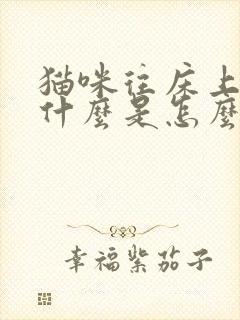 猫咪往床上
什麼是怎麼
幸福紫茄子